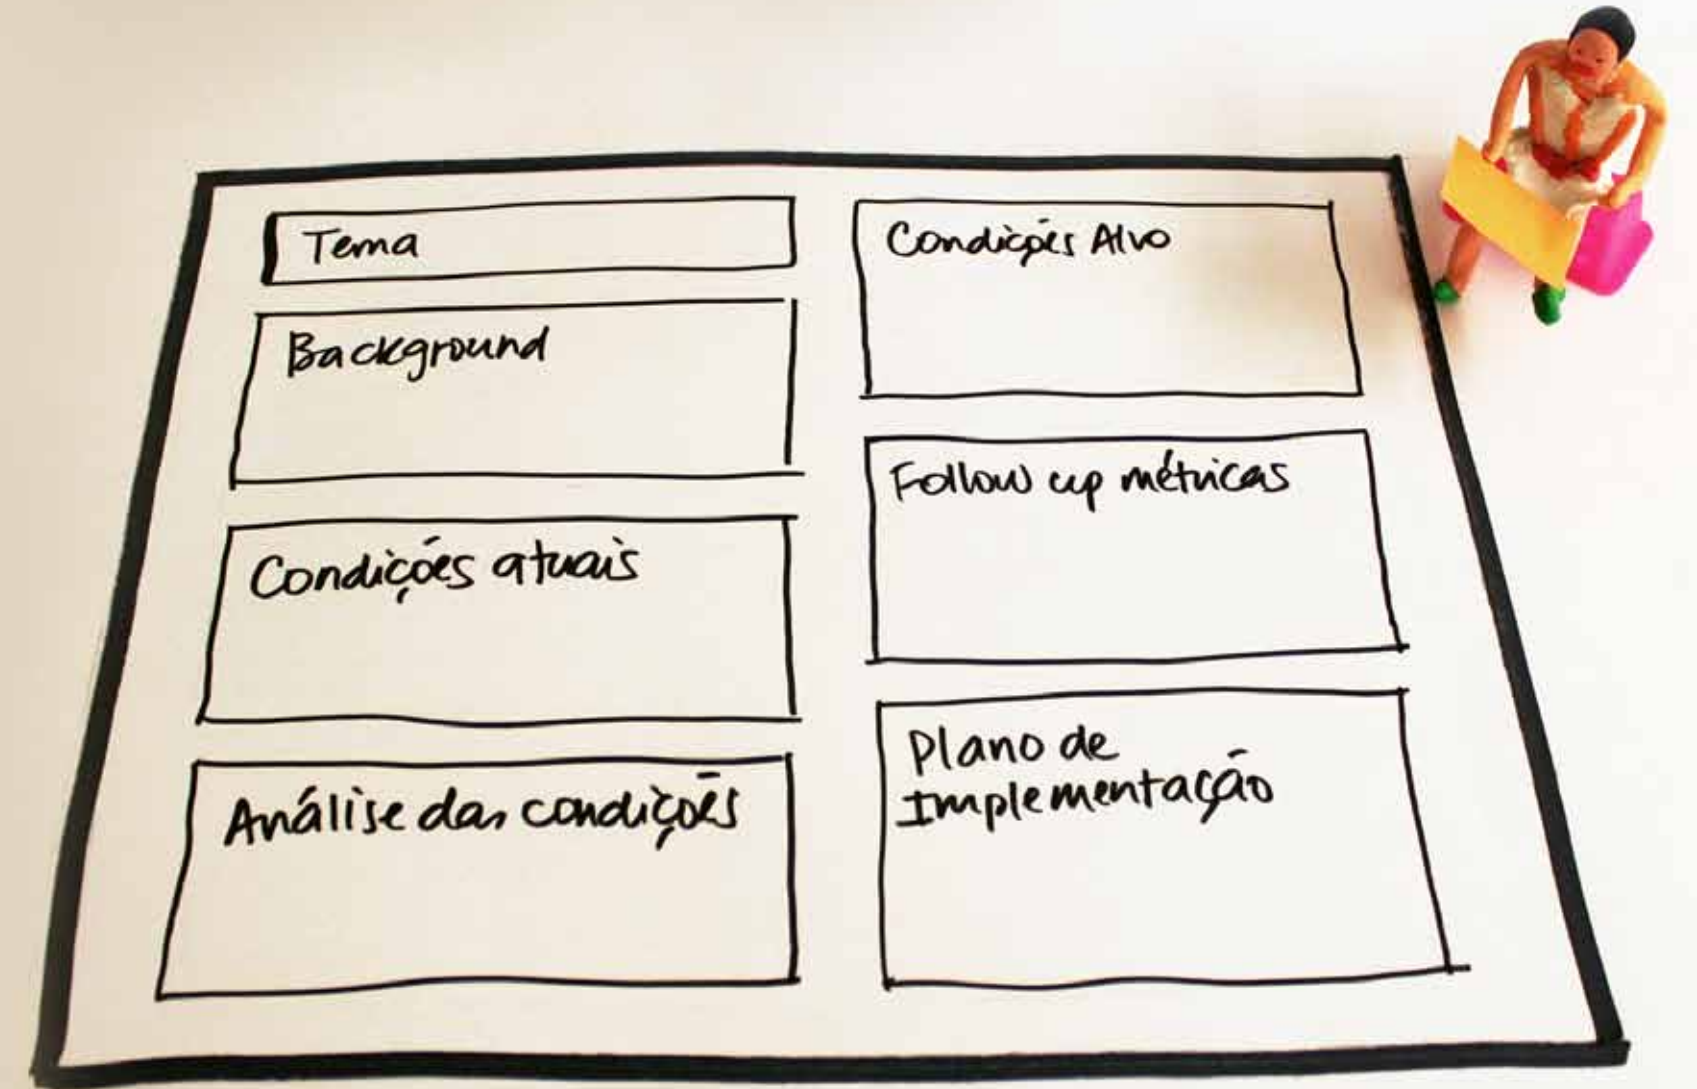 Tema
Background
Condições atuais
Análise das condições
Condições Alvo
Follow up métricas
Plano de
Implementação